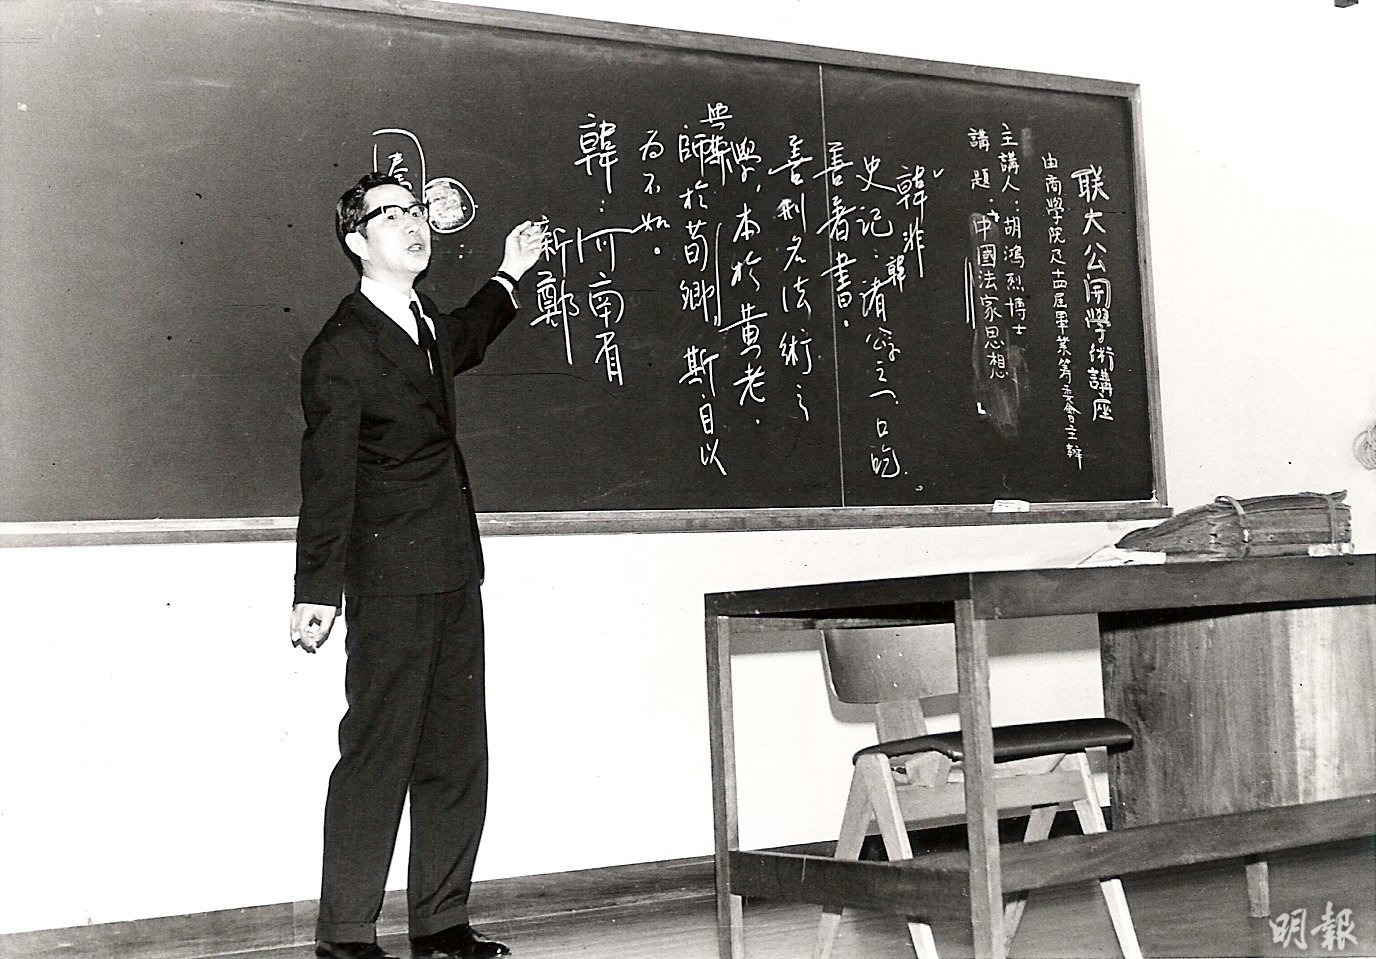 联大公開學術講座
由商學院及十四屆畢業籌委會主辦
主講人：胡鴻烈博士
講題：中國法家思想
韓非
韓
史記：諸公子之一口吃
善著書。
喜刑名法術之
學，本於黃老。
與
師於荀卿，斯自以
為不如。
韓：河南省
新鄭
明報